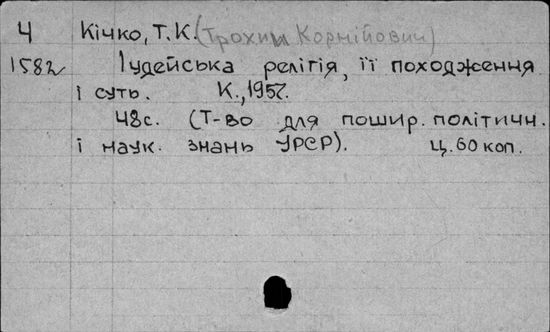 4 Кічко, Т.К. (Трохим Корнійович)
1582 Іудейська релігія, її походження
і суть. К., 1957.
48с. (Т-во для пошир. політичн.
і наук. знань УРСР). Ц. 60 коп.